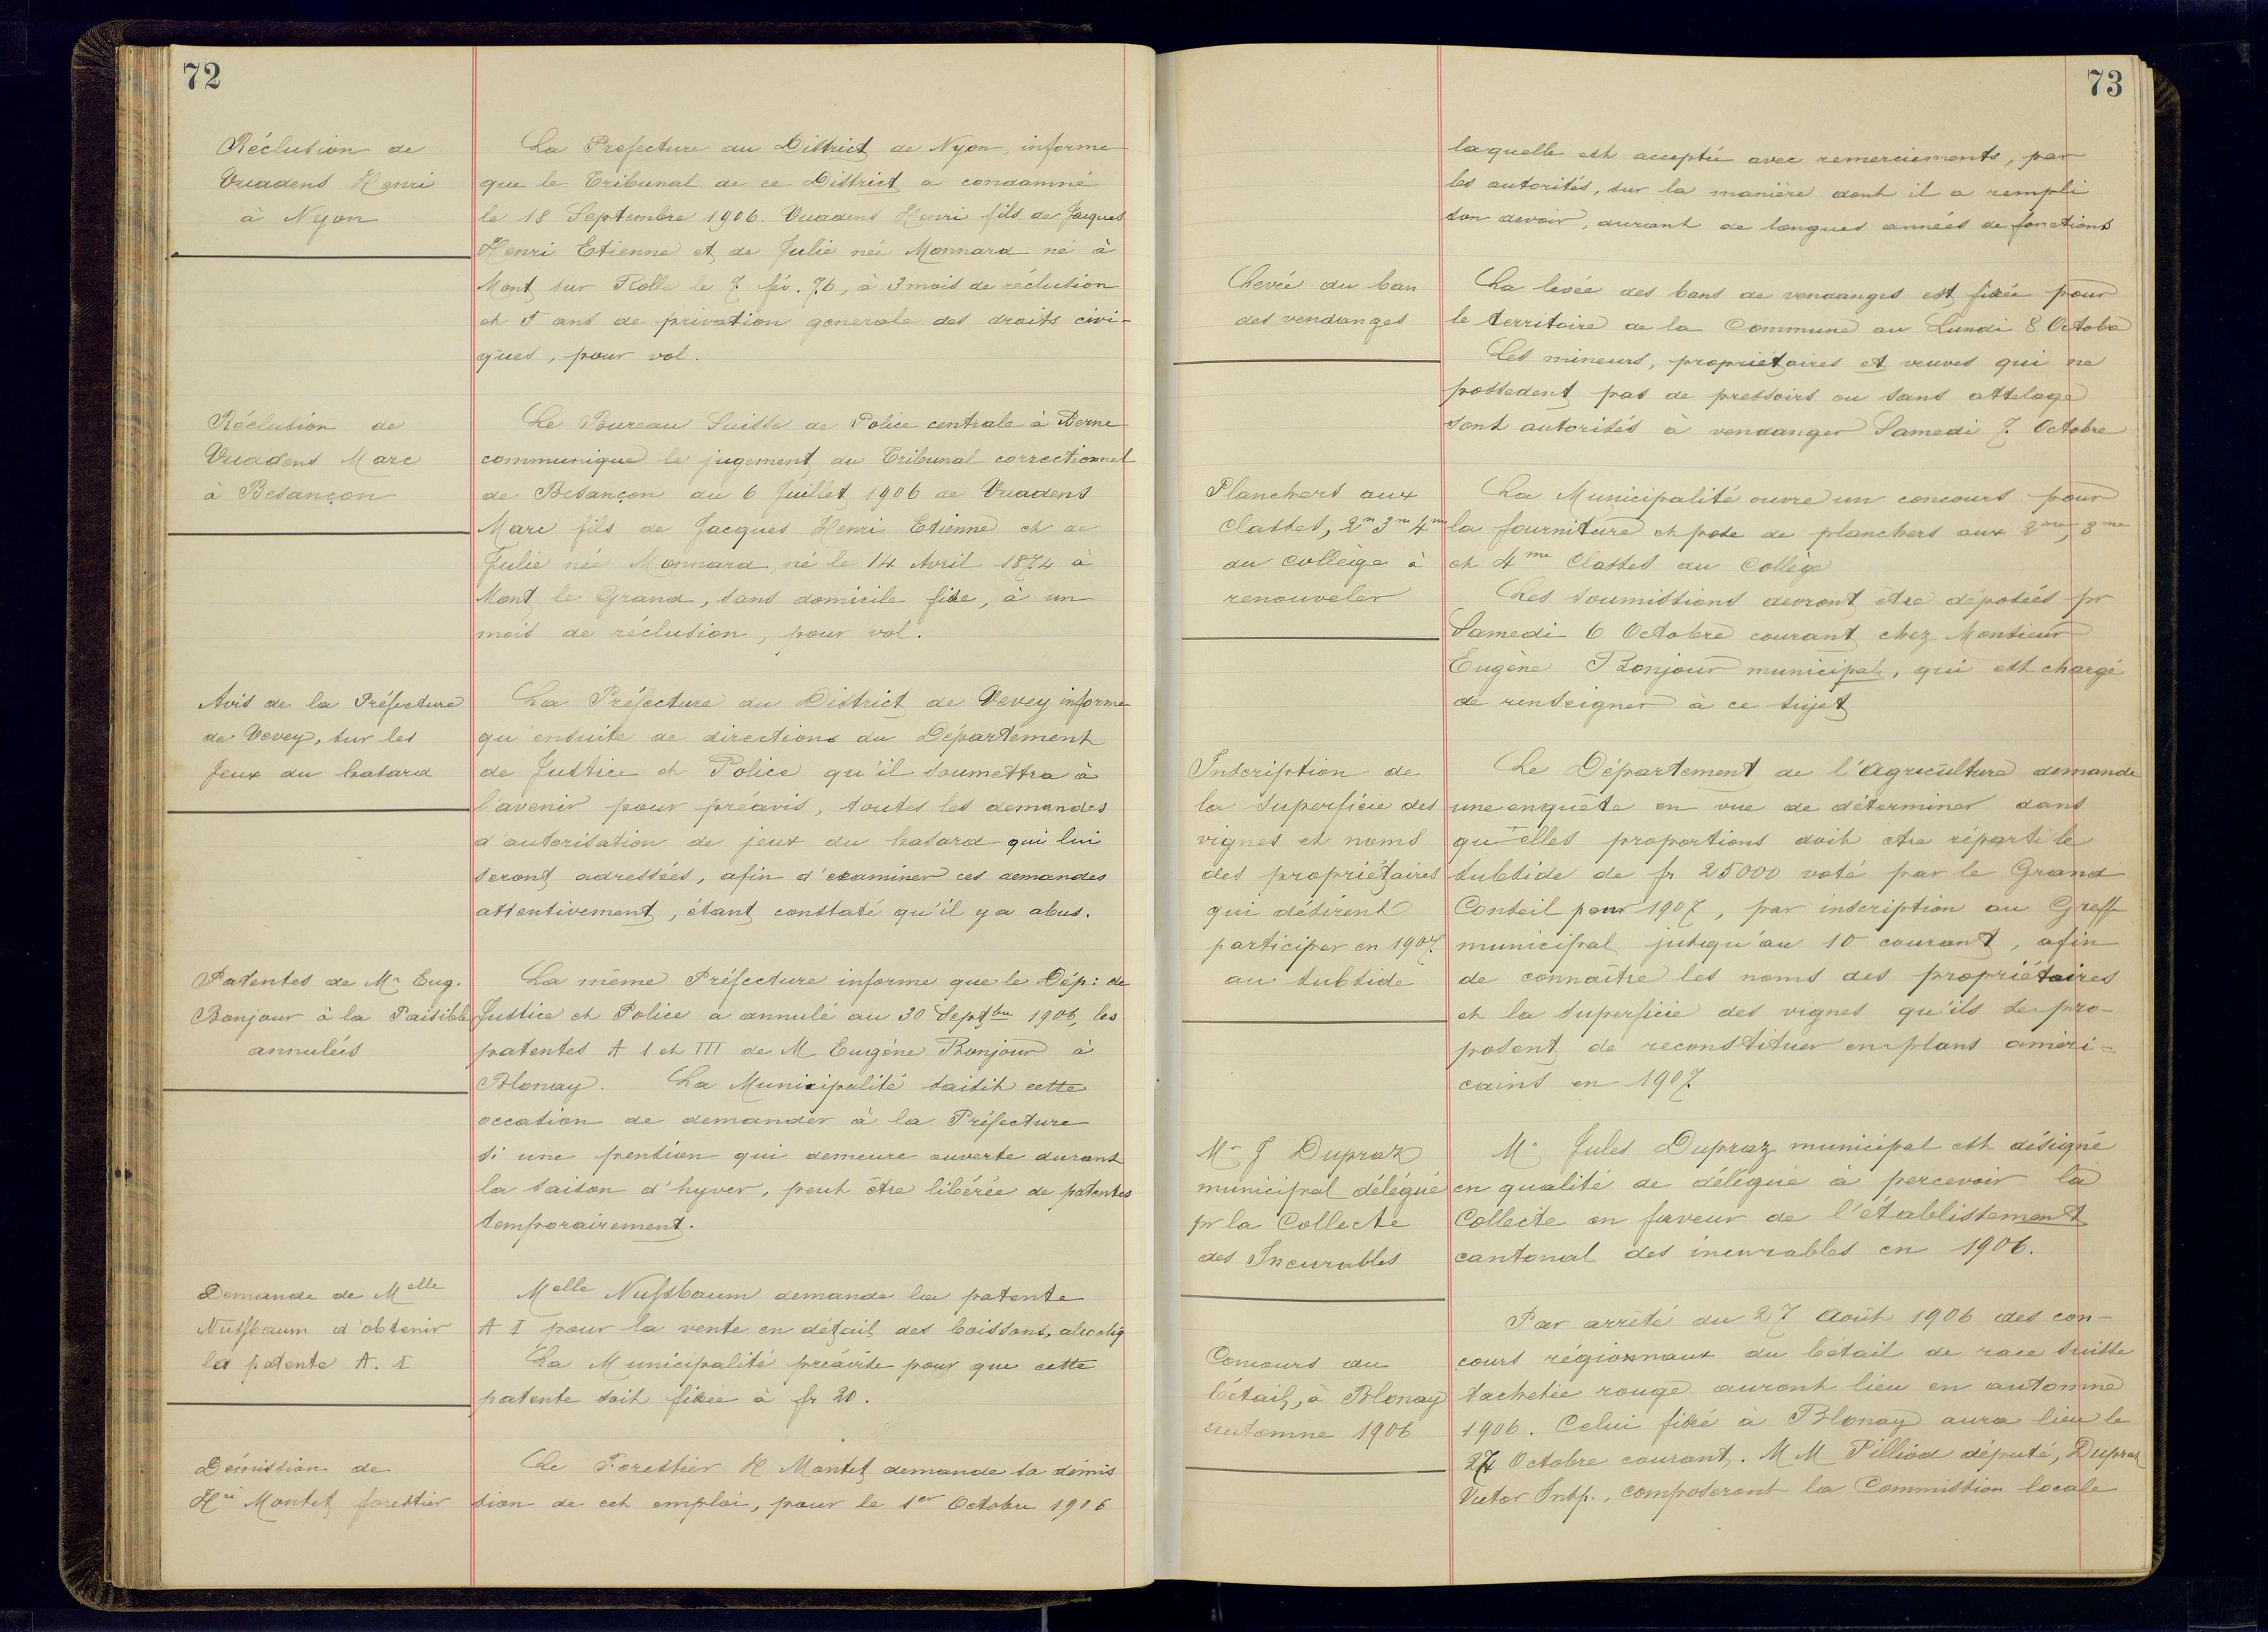 72
Réclusion de
Vuadens Henri
à Nyon
La Prefecture du District de Nyon, informe
que le Tribunal de ce District a condamné
le 18 Septembre 1906. Vuadens Henri fils de Jaques
Henri Etienne et de Julie née Monnard né à
Mont sur Rolle le 7. fév. 76, à 3 mois de réclusion
et 5 ans de privation generale des droits civi-
ques, pour vol.
Réclusion de
Vuadens Marc
à Besançon
Le Bureau Suisse de Police centrale à Berne
communique le jugement du Tribunal correctionnel
de Besançon du 6 Juillet 1906 de Vuadens
Marc fils de Jacques Henri Etienne et de
Julie née Monnard, né le 14 Avril 1874 à
Mont le Grand, sans domicile fixe, à un
mois de réclusion, pour vol.
Avis de la Préfecture
de Vevey, sur les
Jeux du hasard
La Préfecture du District de Vevey informe
qu'ensuite de directions du Département
de Justice et Police qu'il soumettra à
l'avenir pour préavis, toutes les demandes
d'autorisation de jeux du hasard qui lui
seront adressées, afin d'examiner ces demandes
attentivement, étant constaté qu'il y a abus.
Patentes de Mr Eug.
Bonjour à la Paisible
annulées
La même Préfecture informe que le Dép: de
Justice et Police a annulé au 30 Septbre 1906, les
patentes A I et III de M Eugène Bonjour à
Blonay. La Municipalité saisit cette
occasion de demander à la Préfecture
si une pension qui demeure ouverte durant
la saison d'hyver, peut être libérée de patentes
temporairement.
Demande de Melle
Nussbaum d'obtenir
la patente A. I
Melle Nussbaum demande la patente
A I pour la vente en détail des boissons, alcoolig
La Municipalité préavise pour que cette
patente soit fixée à fr 20.
Démission de
Hri Montet forestier
Le Forestier H Montet demande sa démis
sion de cet emploi, pour le 1er Octobre 1906
73
laquelle est acceptée avec remerciements, par
les autorités, sur la manière dont il a rempli
son devoir, durant de longues années de fonctions
Levée du ban
des vendanges
La levée des bans de vendanges est fixée pour
le territoire de la Commune au Lundi 8 Octobre
Les mineurs, propriétaires et veuves qui ne
possedent pas de pressoirs ou sans attelage
sont autorisés à vendanger Samedi 7. Octobre
Planchers aux
Classes, 2m 3m 4m
du collège à
renouveler
La Municipalité ouvre un concours pour
la fourniture et pose de planchers aux 2me, 3me
et 4me Classes du Collège
Les soumissions devront être déposées pr
Samedi 6 Octobre courant chez Monsieur
Eugène Bonjour municipal, qui est chargé
de renseigner à ce sujet
Inscription de
la Superficie des
vignes et noms
des propriétaires
qui désirent
participer en 1907.
au subside
Le Département de l'Agriculture demande
une enquête en vue de déterminer dans
qu'elles proportions doit être réparti le
subside de fr 25000 voté par le Grand
Conseil pour 1907, par inscription au Greffe
municipal jusqu'au 10 courant, afin
de connaître les noms des propriétaires
et la superficie des vignes qu'ils se pro-
posent de reconstituer en plans améri=
cains en 1907.
Mr J Dupraz
municipal délégué
pr la Collecte
des Incurables
Mr Jules Dupraz municipal est désigné
en qualité de délégué à percevoir la
Collecte en faveur de l'établissement
cantonal des incurables en 1906.
Concours du
bétail, à Blonay
Automne 1906
Par arrêté du 27 Août 1906 des con-
cours régionnaux du bétail de race suisse
tachetée rouge auront lieu en automne
1906. Celui fixé à Blonay aura lieu le
Octobre courant. M M Pilliod député, Dupraz
Victor Insp., composeront la Commission locale